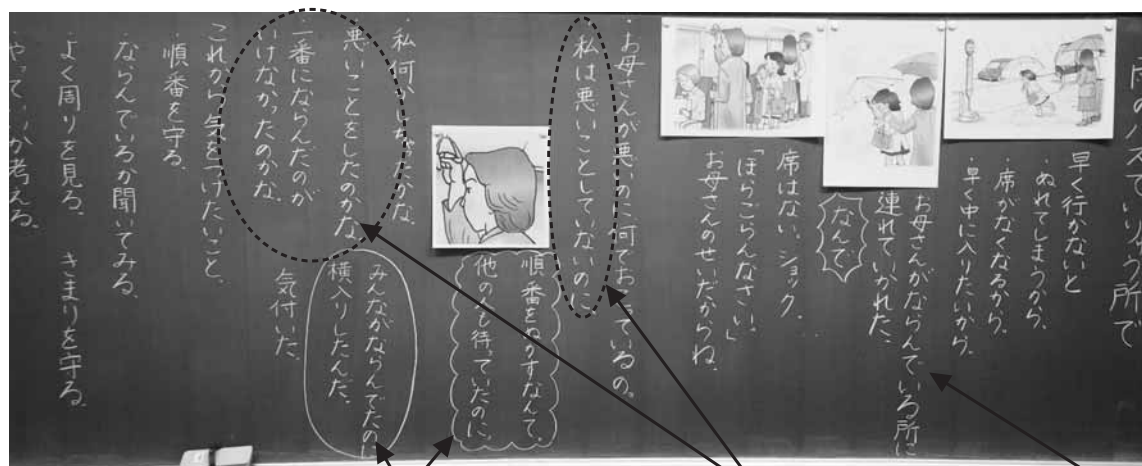 雨のバスていりゅう所で
早く行かないと
・ぬれてしまうから、
・席がなくなるから、
・早く中に入りたいから、
お母さんがならんでいる所に
連れていかれた、
なんで
席はない、ショック、
「ほらごらんなさい」
お母さんのせいだからね、
・お母さんが悪いのに何でおこっているの。
・私は悪いことしていないのに、
順番をぬかすなんて、
他の人も待っていたのに、
・私何かしちゃったかな、
悪いことをしたのかな、
一番にならんだのが
いけなかったのかな、
みんながならんでたのに
横入りしたんだ、
気付いた、
これから気をつけたいこと、
・順番を守る、
・ならんでいるか聞いてみる、
・よく周りを見る、 きまりを守る、
・やっていいか考える、